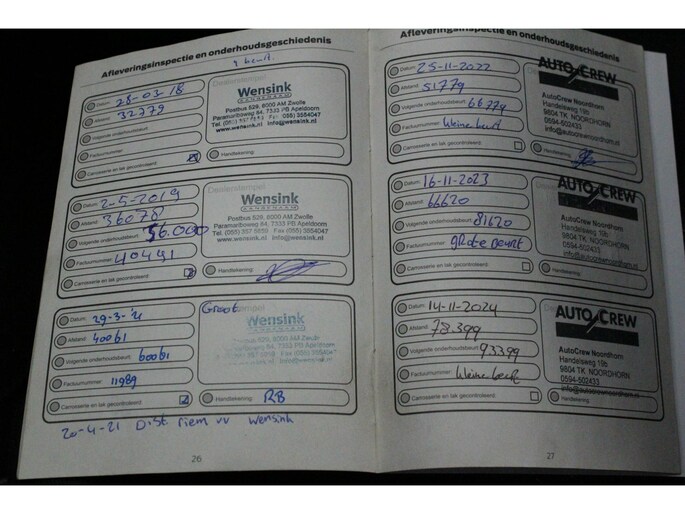 Afleveringsinspectie en onderhoudsgeschiedenis
Datum: 28-03-18
Afstand: 32779
Volgende onderhoudsbeurt:
Factuurnummer:
Carrosserie en lak gecontroleerd:
Wensink
Postbus 529, 8000 AM Zwolle
Paramariboweg 84, 7333 PB Apeldoorn
www.wensink.nl info@wensink.nl
Handtekening:
Datum: 2-5-2019
Afstand: 36078
Volgende onderhoudsbeurt: 56.000
Factuurnummer: 40491
Carrosserie en lak gecontroleerd:
Dealerstempel
Wensink
Postbus 529, 8000 AM Zwolle
Paramariboweg 84, 7333 PB Apeldoorn
www.wensink.nl info@wensink.nl
Handtekening:
Datum: 29-3-21
Afstand: 40061
Volgende onderhoudsbeurt: 60061
Factuurnummer: 11989
Carrosserie en lak gecontroleerd:
Groot
Wensink
Handtekening: RB
20-4-21 Dist. riem vv Wensink
26
Afleveringsinspectie en onderhoudsgeschiedenis
Datum: 25-11-2022
Afstand: 51779
Volgende onderhoudsbeurt: 66779
Factuurnummer: kleine beurt
Carrosserie en lak gecontroleerd:
AUTO CREW
AutoCrew Noordhorn
Handelsweg 19b
9804 TK NOORDHORN
0594-502433
info@autocrewnoordhorn.nl
Handtekening:
Datum: 16-11-2023
Afstand: 66620
Volgende onderhoudsbeurt: 81620
Factuurnummer: grote beurt
Carrosserie en lak gecontroleerd:
AUTO CREW
AutoCrew Noordhorn
Handelsweg 19b
9804 TK NOORDHORN
0594-502433
info@autocrewnoordhorn.nl
Handtekening:
Datum: 14-11-2024
Afstand: 78.399
Volgende onderhoudsbeurt: 93399
Factuurnummer: kleine beurt
Carrosserie en lak gecontroleerd:
AUTO CREW
AutoCrew Noordhorn
Handelsweg 19b
9804 TK NOORDHORN
0594-502433
info@autocrewnoordhorn.nl
Handtekening:
27